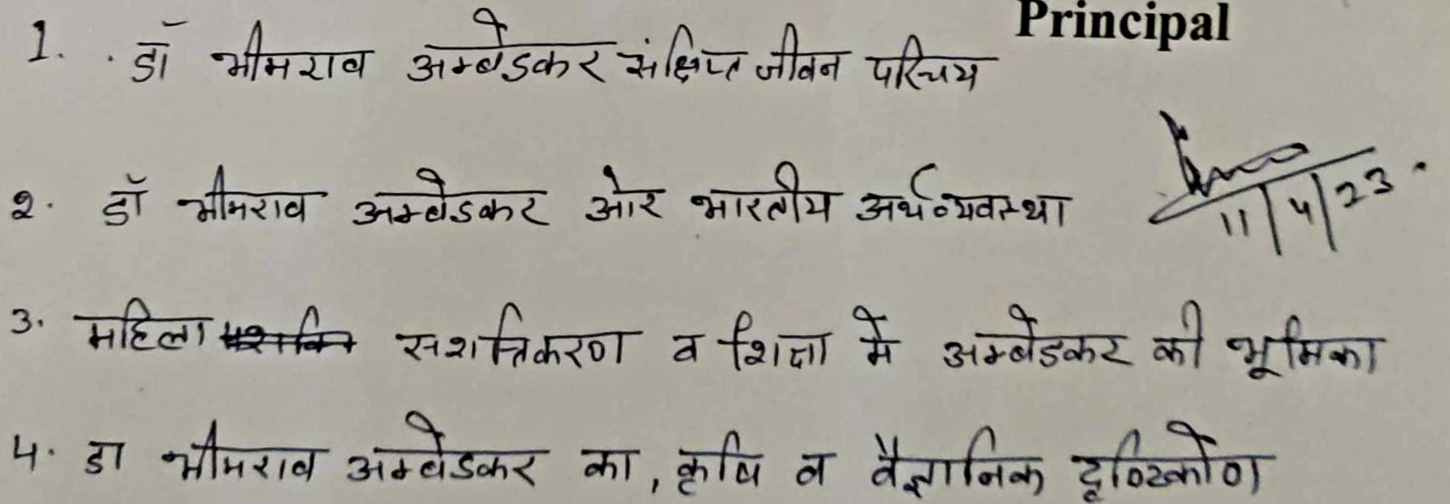 Principal
1. डॉ भीमराव अम्बेडकर संक्षिप्त जीवन परिचय
2. डॉ भीमराव अम्बेडकर ओर भारतीय अर्थव्यवस्था
11/4/23.
3. महिला सशक्तिकरण व शिक्षा में अम्बेडकर की भूमिका
4. डा भीमराव अम्बेडकर का, कृषि व वैज्ञानिक दृष्टिकोण